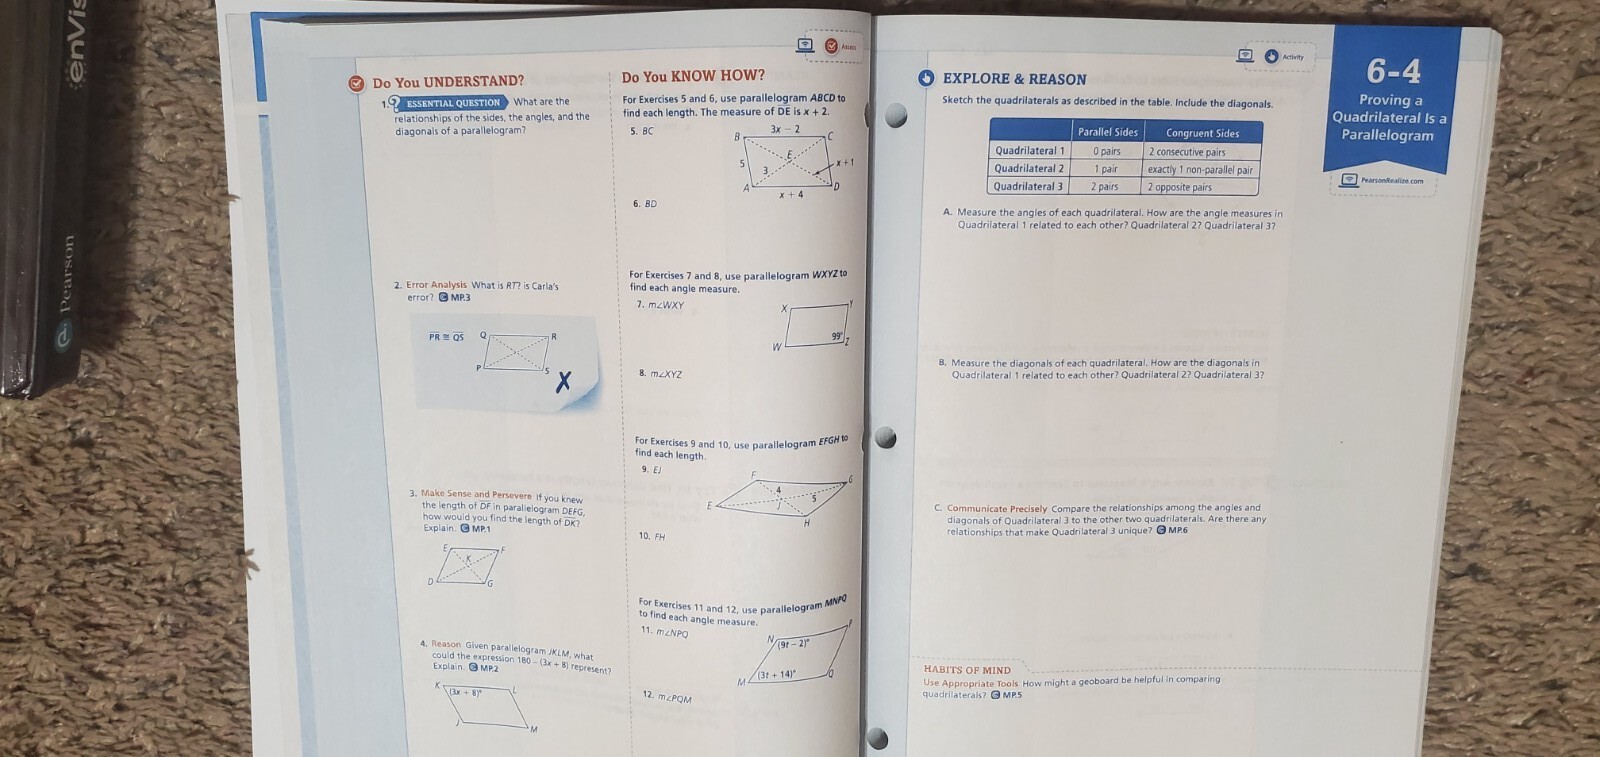 enVis
Pearson
Assess
Do You UNDERSTAND?
1. ? ESSENTIAL QUESTION What are the
relationships of the sides, the angles, and the
diagonals of a parallelogram?
2. Error Analysis What is RT? is Carla's
error? MP.3
PR ≅ QS
Q
R
P
S
X
3. Make Sense and Persevere If you knew
the length of DF in parallelogram DEFG,
how would you find the length of DK?
Explain. MP.1
E
F
K
D
G
4. Reason Given parallelogram JKLM, what
could the expression 180 – (3x + 8) represent?
Explain. MP.2
K
L
(3x + 8)°
J
M
Do You KNOW HOW?
For Exercises 5 and 6, use parallelogram ABCD to
find each length. The measure of DE is x + 2.
5. BC
B
3x – 2
C
5
E
x + 1
3
A
D
x + 4
6. BD
For Exercises 7 and 8, use parallelogram WXYZ to
find each angle measure.
7. m∠WXY
X
Y
99°
W
Z
8. m∠XYZ
For Exercises 9 and 10, use parallelogram EFGH to
find each length.
9. EJ
F
G
4
5
J
E
H
10. FH
For Exercises 11 and 12, use parallelogram MNPQ
to find each angle measure.
11. m∠NPQ
N
P
(9t – 2)°
(3t + 14)°
M
Q
12. m∠PQM
Activity
EXPLORE & REASON
Sketch the quadrilaterals as described in the table. Include the diagonals.
Parallel Sides Congruent Sides
Quadrilateral 1 0 pairs 2 consecutive pairs
Quadrilateral 2 1 pair exactly 1 non-parallel pair
Quadrilateral 3 2 pairs 2 opposite pairs
A. Measure the angles of each quadrilateral. How are the angle measures in
Quadrilateral 1 related to each other? Quadrilateral 2? Quadrilateral 3?
B. Measure the diagonals of each quadrilateral. How are the diagonals in
Quadrilateral 1 related to each other? Quadrilateral 2? Quadrilateral 3?
C. Communicate Precisely Compare the relationships among the angles and
diagonals of Quadrilateral 3 to the other two quadrilaterals. Are there any
relationships that make Quadrilateral 3 unique? MP.6
HABITS OF MIND
Use Appropriate Tools How might a geoboard be helpful in comparing
quadrilaterals? MP.5
6-4
Proving a
Quadrilateral Is a
Parallelogram
PearsonRealize.com